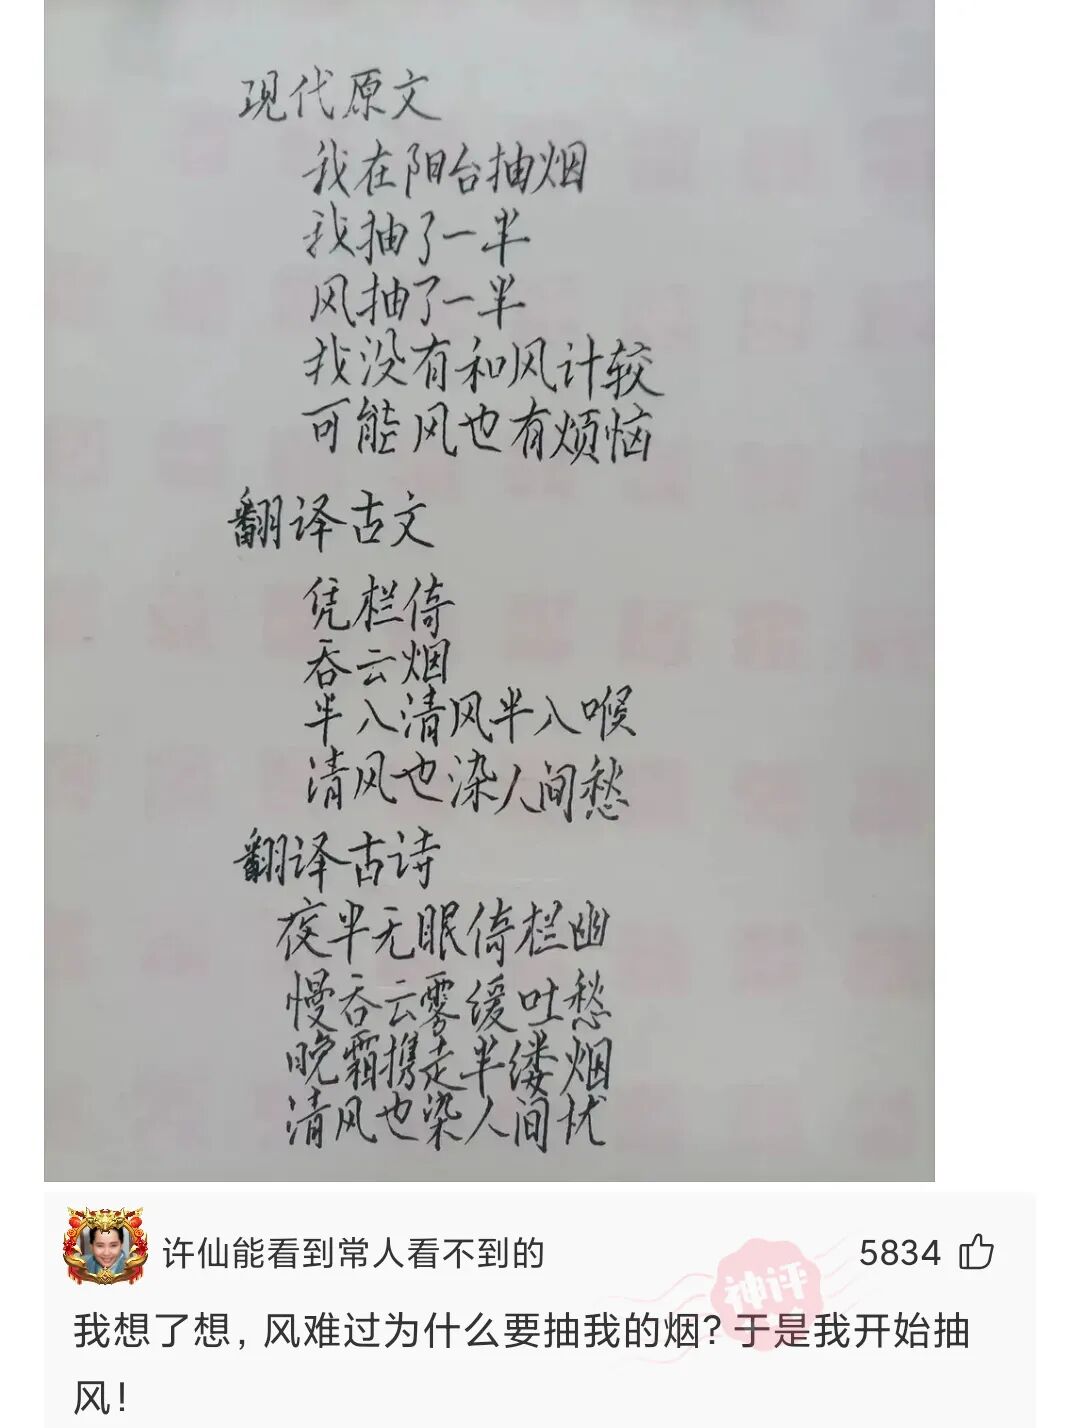 现代原文
我在阳台抽烟
我抽了一半
风抽了一半
我没有和风计较
可能风也有烦恼
翻译古文
凭栏倚
吞云烟
半入清风半入喉
清风也染人间愁
翻译古诗
夜半无眠倚栏幽
慢吞云雾缓吐愁
晚霜携走半缕烟
清风也染人间忧
许仙能看到常人看不到的
5834
神评
我想了想,风难过为什么要抽我的烟?于是我开始抽
风!